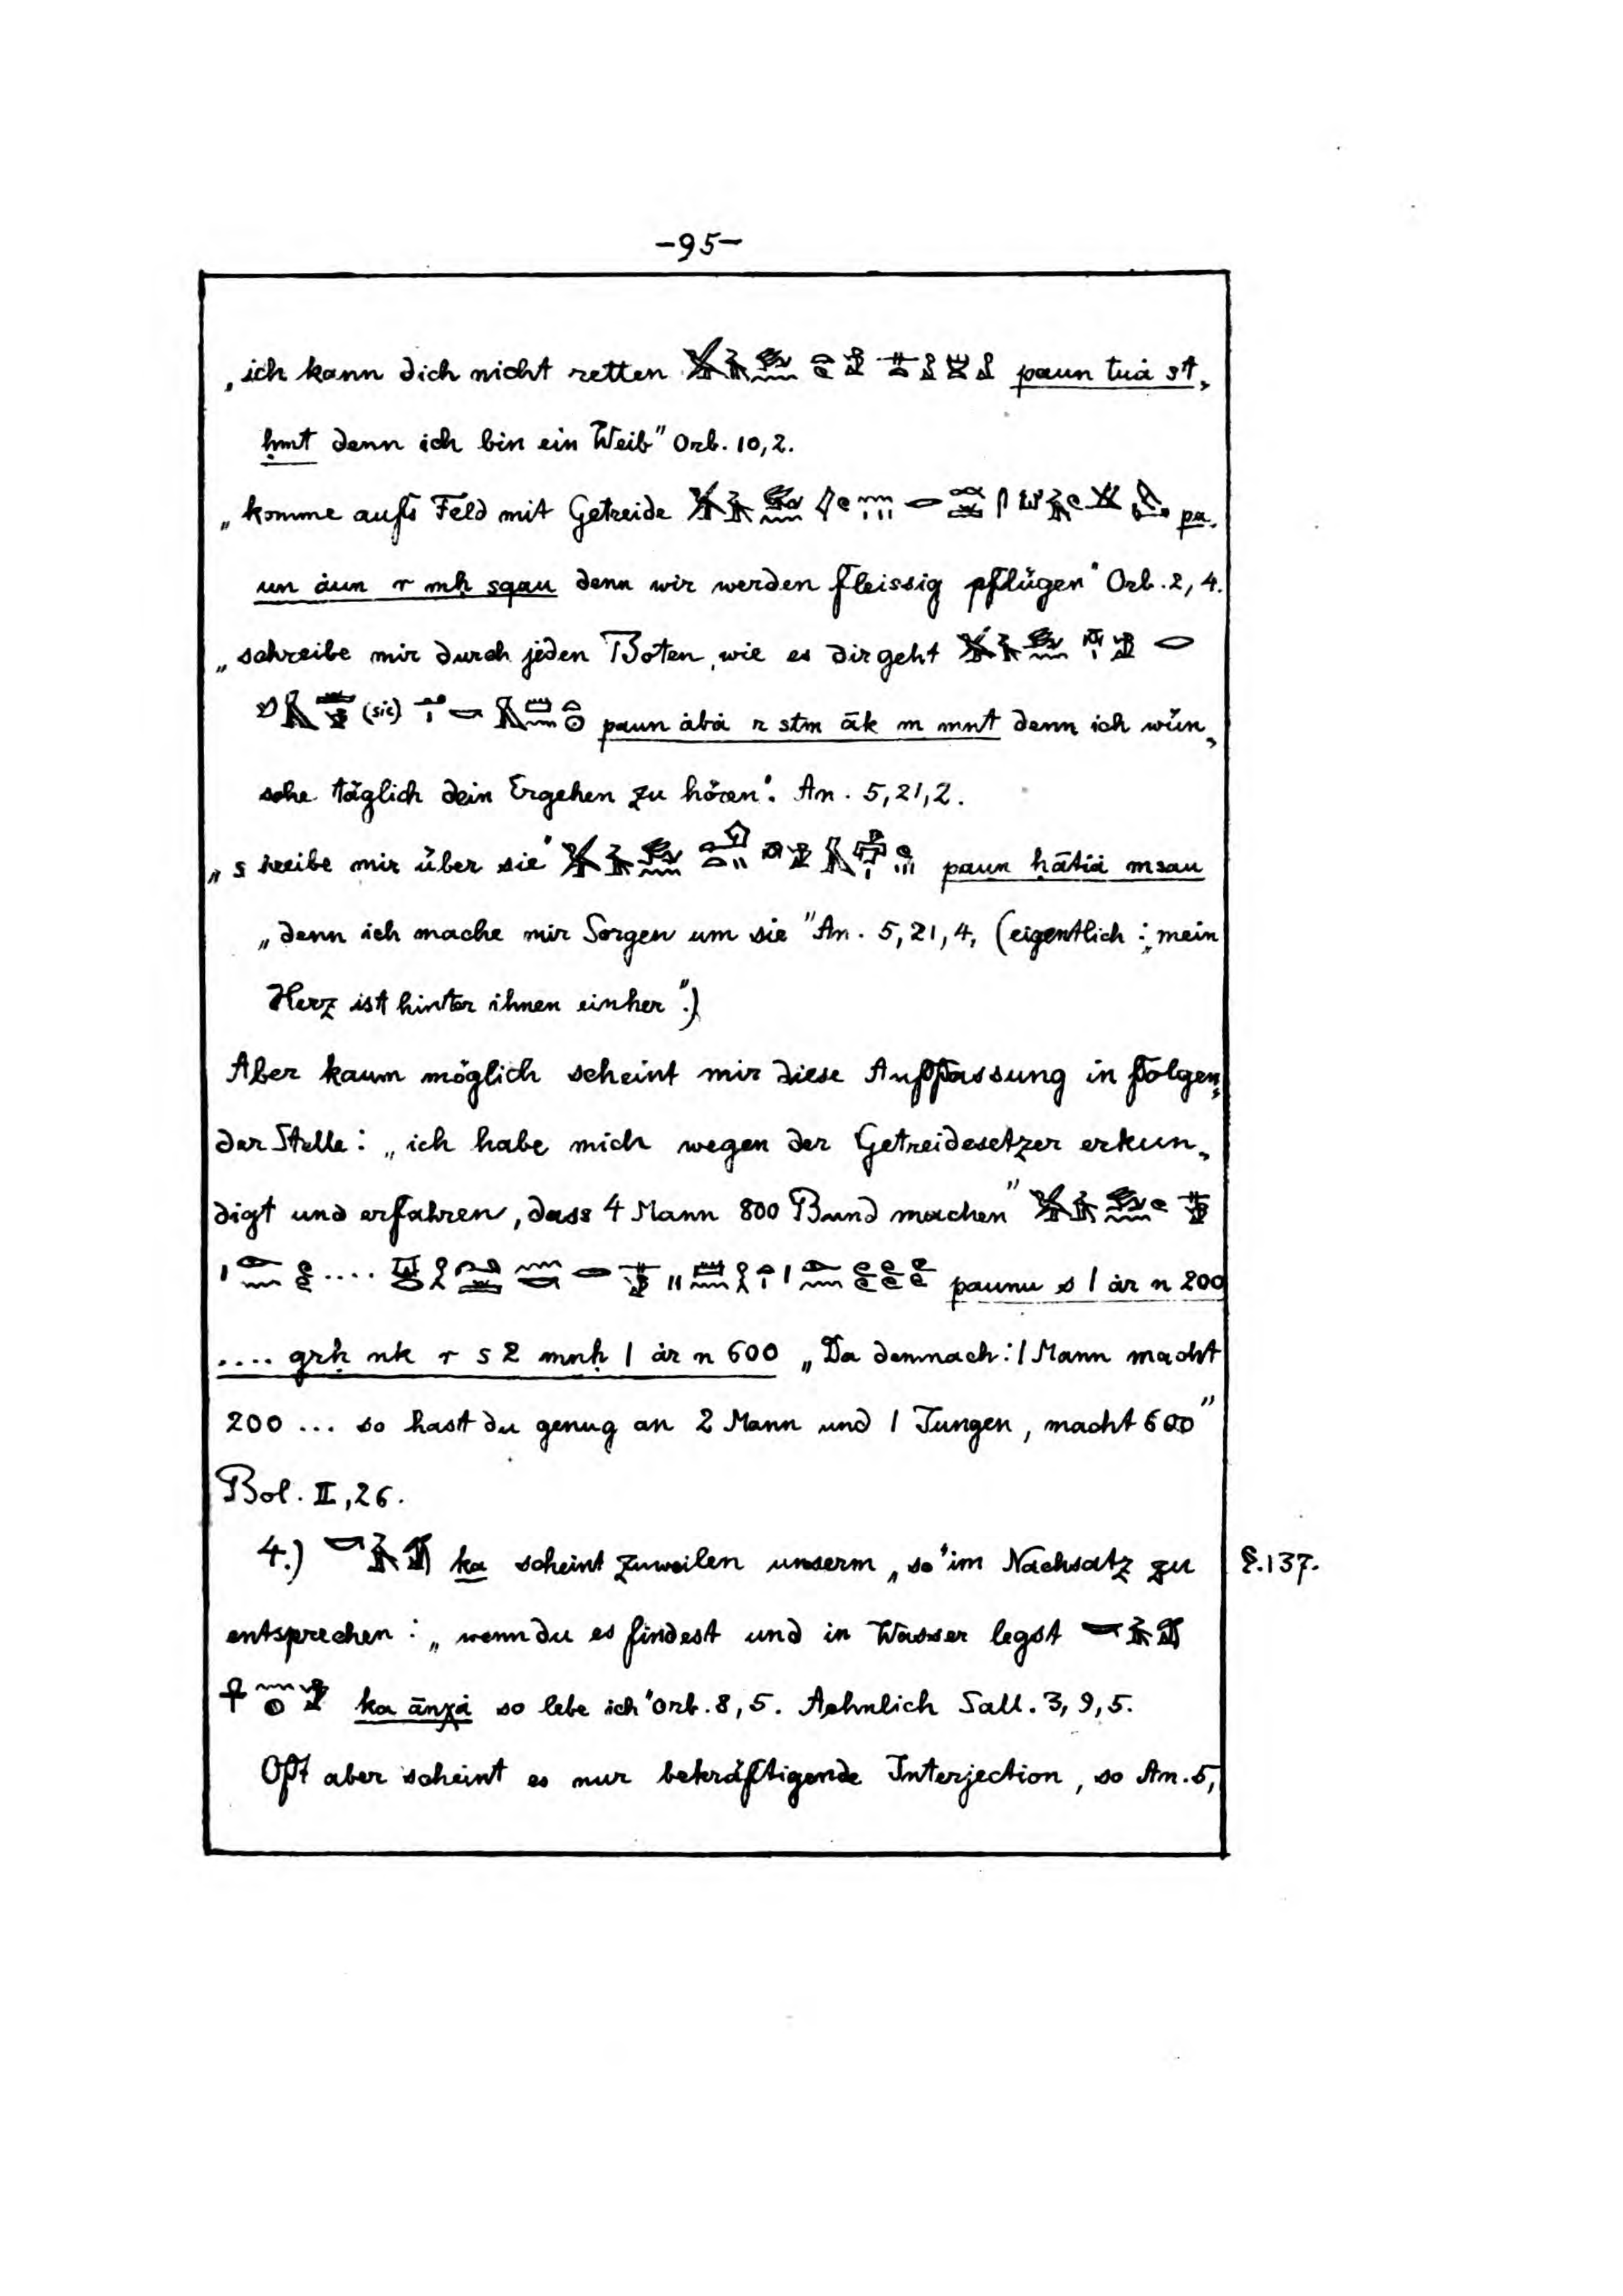 -95-
„ich kann dich nicht retten paun tuȧ st„
ḥmt denn ich bin ein Weib" Orb. 10,2.
„komme aufs Feld mit Getreide pa„
un ȧun r mḥ sqau denn wir werden fleissig pflügen" Orb. 2, 4.
„schreibe mir durch jeden Boten, wie es dir geht
(sic) paun ȧbȧ r stm āk m mnt denn ich wün„
sche täglich dein Ergehen zu hören". An. 5,21,2.
„s hreibe mir über sie" paun ḥātiȧ msau
„denn ich mache mir Sorgen um sie" An. 5, 21, 4, (eigentlich: „mein
Herz ist hinter ihnen einher".)
Aber kaum möglich scheint mir diese Auffassung in folgen„
der Stelle: „ich habe mich wegen der Getreidesetzer erkun„
digt und erfahren, dass 4 Mann 800 Bund machen"
.... paunu s 1 ȧr n 200
.... grḥ nk r s 2 mnḥ 1 ȧr n 600 „Da demnach: 1 Mann macht
200 ... so hast du genug an 2 Mann und 1 Jungen, macht 600"
Bol. II, 26.
4.) ka scheint zuweilen unserm „so" im Nachsatz zu §. 137.
entsprechen: „wenn du es findest und in Wasser legst
ka ānχȧ so lebe ich" Orb. 8, 5. Aehnlich Sall. 3, 9, 5.
Oft aber scheint es nur bekräftigende Interjection, so An. 5,